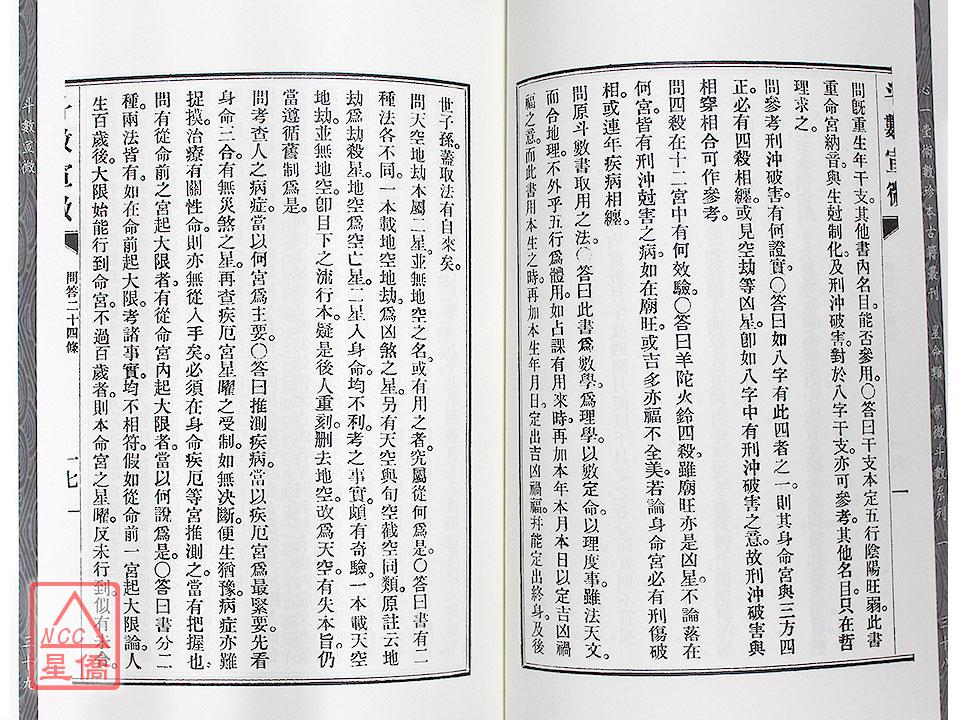 心一堂術數珍本古籍叢刊 星命類 紫微斗數系列
斗數宣微
一
問既重生年干支。其他書內名目。能否參用。〇答曰干支本定五行陰陽旺弱。此書
重命宮納音。與生尅制化。及刑沖破害。對於八字干支。亦可參考。其他名目。只在哲
理求之。
問參考刑沖破害。有何證實。〇答曰如八字有此四者之一。則其身命宮與三方四
正。必有四殺相纏。或見空劫等凶星。卽如八字中有刑沖破害之意。故刑沖破害與
相穿相合。可作參考。
問四殺在十二宮中有何效驗。〇答曰羊陀火鈴四殺。雖廟旺亦是凶星。不論落在
何宮。皆有刑沖尅害之病。如在廟旺。或吉多亦福不全美。若論身命宮。必有刑傷破
相。或連年疾病相纏。
問原斗數書取用之法。〇答曰此書爲數學。爲理學。以數定命。以理度事。雖法天文。
而合地理。不外乎五行爲體用。如占課有用來時。再加本年本月本日。以定吉凶禍
福之意。而此書用本生之時。再加本生年月日。定出吉凶禍福。幷能定出終身及後
世子孫。蓋取法有自來矣。
問天空地劫本屬二星。並無地空之名。或有用之者。究屬從何爲是。〇答曰書有二
種。法各不同。一本載地空地劫。爲凶煞之星。另有天空與旬空截空同類。原註云地
劫爲劫殺星。地空爲空亡星。二星入身命。均不利。考之事實。頗有奇驗。一本載天空
地劫。並無地空。卽目下之流行本。疑是後人重刻。刪去地空。改爲天空。有失本旨。仍
當遵循舊制爲是。
問考查人之病症。當以何宮爲主要。〇答曰推測疾病。當以疾厄宮爲最緊要。先看
身命三合有無災煞之星。再查疾厄宮星曜之受制。如無決斷。便生猶豫。病症亦難
捉摸。治療有關性命。則亦無從入手矣。必須在身命疾厄等宮推測之。當有把握也。
問有從命前之宮起大限者。有從命宮內起大限者。當以何說爲是。〇答曰書分二
種。兩法皆有。如在命前起大限。考諸事實。均不相符。假如從命前一宮起大限論。人
生百歲後。大限始能行到命宮。不過百歲者。則本命宮之星曜。反未行到。似有未合。
斗數宣微
問答二十四條
十七
斗數宣微
三十九
NCC
星僑